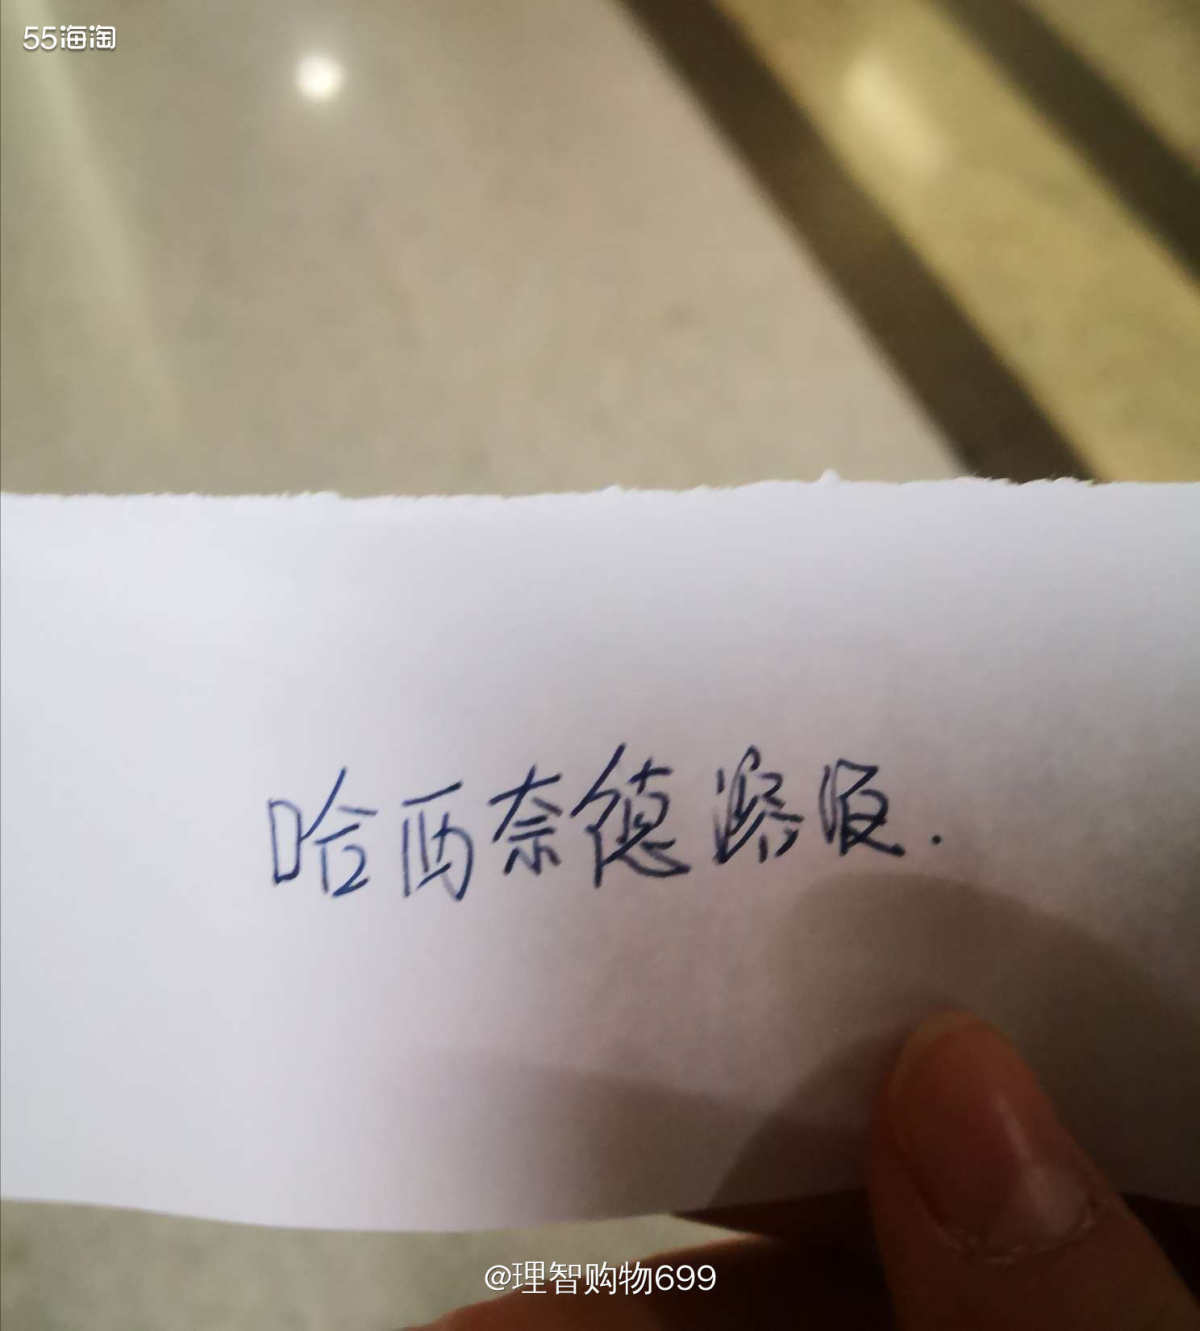 55海淘
哈西奈德溶液.
@理智购物699